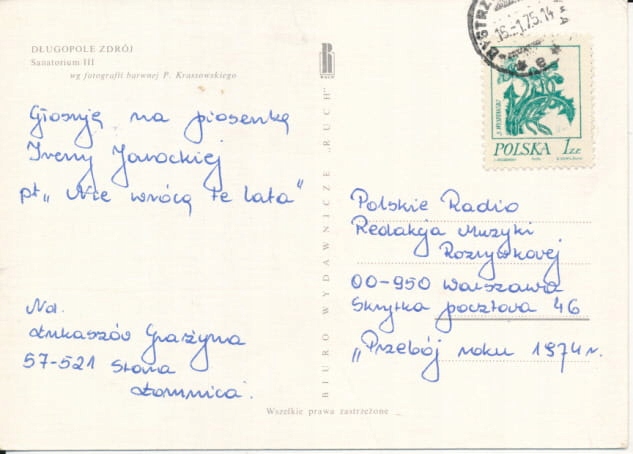 DŁUGOPOLE ZDRÓJ
Sanatorium III
wg fotografii barwnej P. Krassowskiego
Głosuję na piosenkę
Ireny Jarockiej
pt „Nie wrócą te lata"
Nd.
Łukaszów Grażyna
57-521 Stara
Łomnica.
BIURO WYDAWNICZE „RUCH"
RUCH
16.-1.75.14
BYSTRZ
KA
B
S. WYSPIAŃSKI
POLSKA 1 ZŁ
Polskie Radio
Redakcja Muzyki
Rozrywkowej
00-950 Warszawa
Skrytka pocztowa 46
„Przebój roku 1974 r.
Wszelkie prawa zastrzeżone